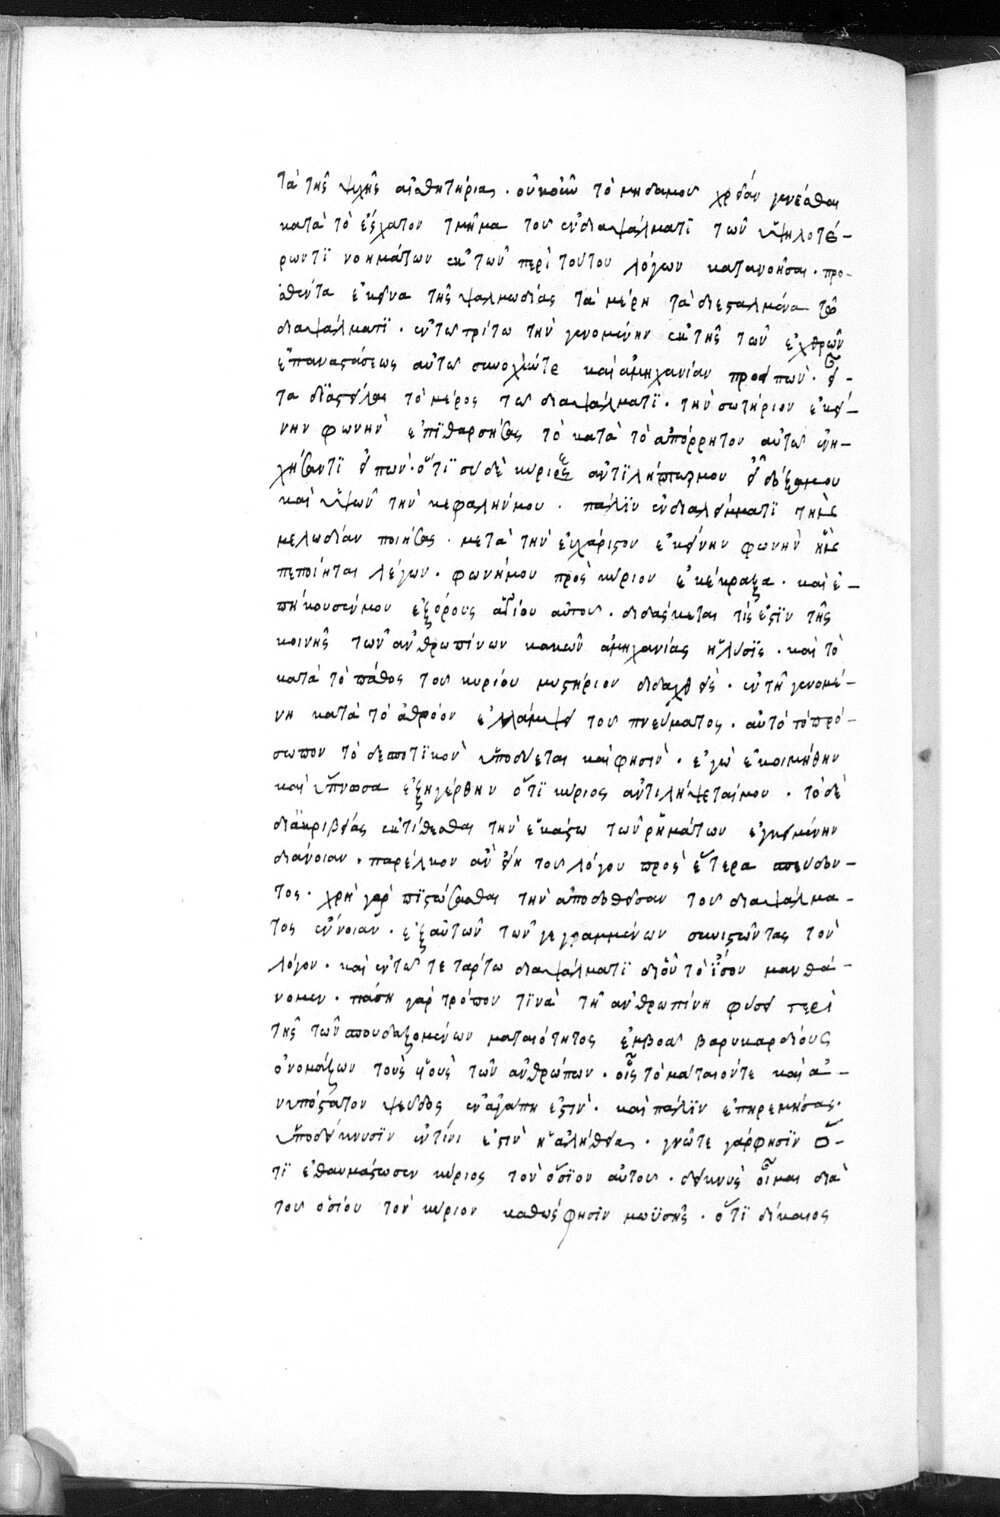 τὰ τῆς ψυχῆς αἰσθητήρια. οὐκοῦν τὸ μηδαμοῦ χρείαν γενέσθαι
κατὰ τὸ ἔσχατον τμῆμα τοῦ ἐνδιαψάλματϊ τῶν ὑψηλοτέ-
ρων τϊ νοημάτων ἐκ τῶν περὶ τούτου λόγων κατανοῆσαι. προ-
σθέντα ἐκεῖνα τῆς ψαλμωδίας τὰ μέρη τὰ διεσταλμένα τῶ
διαψάλματϊ. ἐν τῶ τρίτω τὴν γενομένην ἐκ τῆς τῶν ἐχθρῶν
ἐπαναστάσεως αὐτῶ συνοχήν τε καὶ ἀμηχανίαν προειπών. εἶ-
τα διαστείλας τὸ μέρος τῶ διαψάλματϊ. τὴν σωτήριον ἐκεί-
νην φωνὴν ἐπϊθαρσήσας τὸ κατὰ τὸ ἀπόρρητον αὐτῶ ἐνη-
χήσαντϊ εἰπὼν. ὅτϊ σὺ δὲ κύριε ἀντϊλήπτωρ μου εἶ δόξα μου
καὶ ὑψῶν τὴν κεφαλήν μου. πάλϊν ἐν διαλείμματϊ τῆς
μελωδίαν ποιήσας. μετὰ τὴν εὐχάριστον ἐκείνην φωνὴν ἣν
πεποίηται λέγων. φωνῇ μου πρὸς κύριον ἐκέκραξα. καὶ ἐ-
πήκουσέν μου ἐξ ὄρους ἁγίου αὐτοῦ. διδάσκεται τίς ἐστϊν τῆς
κοινῆς τῶν ἀνθρωπίνων κακῶν ἀμηχανίας ἡ λύσϊς. καὶ τὸ
κατὰ τὸ πάθος τοῦ κυρίου μυστήριον διδαχθεὶς. ἐν τῇ γενομέ-
νη κατὰ τὸ ἀθρόον ἐλλάμψει τοῦ πνεύματος. αὐτὸ τὸ πρό-
σωπον τὸ δεσποτϊκὸν ὑποδύεται καὶ φησὶν. ἐγὼ ἐκοιμήθην
καὶ ὕπνωσα ἐξηγέρθην ὅτϊ κύριος ἀντιλήψεταί μου. τὸ δὲ
διἀκριβείας ἐκτίθεσθαι τὴν ἑκάστω τῶν ῥημάτων ἐγκειμένην
διάνοιαν. παρέλκον ἂν εἴη τοῦ λόγου πρὸς ἕτερα σπεύδον-
τος. χρὴ γὰρ πϊστώσασθαι τὴν ἀποδοθεῖσαν τοῦ διαψάλμα-
τος ἔννοιαν. ἐξ αὐτῶν τῶν γεγραμμένων συνιστῶντας τὸν
λόγον. καὶ ἐν τῶ τετάρτω διαψάλματϊ διοῦ τὸ ἴσον μανθά-
νομεν. πάση γὰρ τρόπον τϊνὰ τῇ ἀνθρωπίνη φύσει περὶ
τῆς τῶν σπουδαζομένων ματαιότητος ἐμβοᾷ βαρυκαρδίους
ὀνομάζων τοὺς υἱοὺς τῶν ἀνθρώπων. οἷς τὸ μάταιόν τε καὶ ἀ-
νυπόστατον ψεῦδος ἐν ἀγάπη ἐστὶν. καὶ πάλϊν ἐπηρεμήσας
ὑποδείκνυσϊν ἐν τίνι ἐστὶν ἡ ἀλήθεια. γνῶτε γάρ φησϊν ὅ-
τϊ ἐθαυμάστωσεν κύριος τὸν ὅσϊον αὐτοῦ. δεικνὺς οἶμαι διὰ
τοῦ ὁσίου τὸν κύριον καθώς φησϊν μωϋσῆς. ὅτϊ δίκαιος